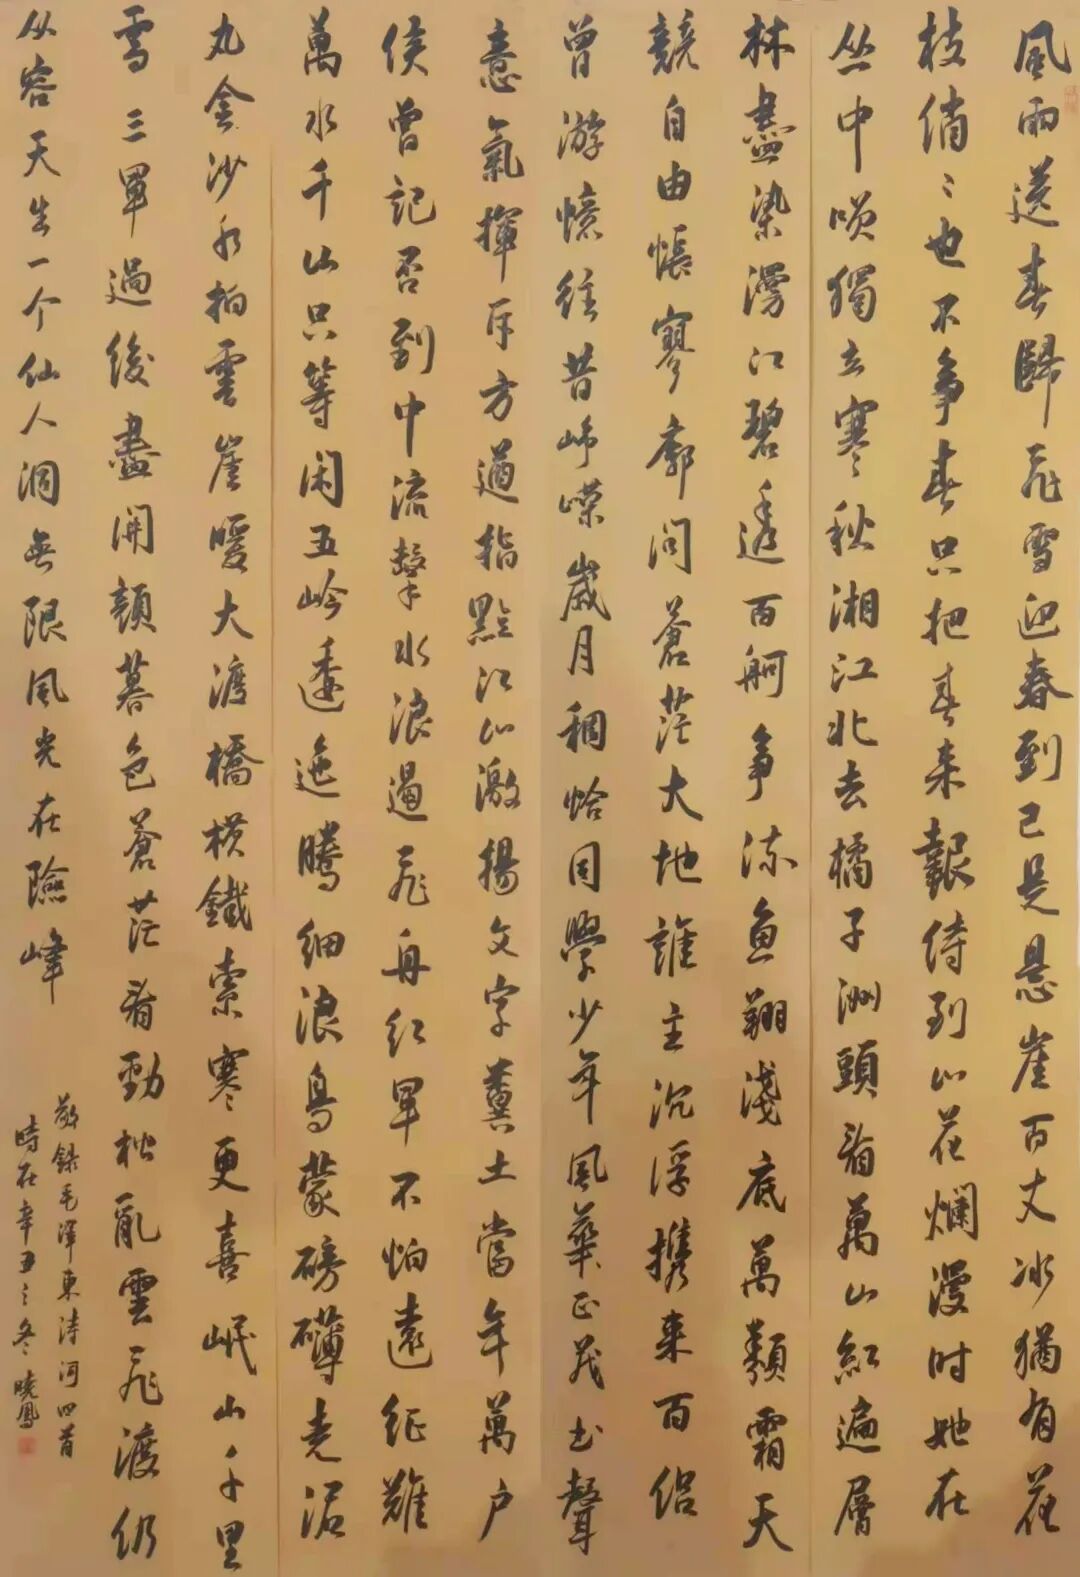 風雨送春歸飛雪迎春到已是悬崖百丈冰猶有花
枝俏〻也不争春只把春来報待到山花爛漫时她在
丛中咲獨立寒秋湘江北去橘子洲頭看萬山紅遍層
林盡染漫江碧透百舸争流魚翔淺底萬類霜天
競自由悵寥廓問蒼茫大地誰主沉浮携来百侣
曾游憶往昔崢嶸歲月稠恰同學少年風華正茂书聲
意氣揮斥方遒指點江山激揚文字糞土當年萬户
侯曾記否到中流擊水浪遏飛舟红軍不怕遠征難
萬水千山只等闲五岭逶迤騰细浪烏蒙磅礴走泥
丸金沙水拍雲崖暖大渡橋横鐵索寒更喜岷山千里
雪三軍過後盡開顔暮色蒼茫看勁松亂雲飛渡仍
从容天生一个仙人洞無限風光在險峰
敬録毛澤東诗词四首
時在辛丑之冬 曉鳳